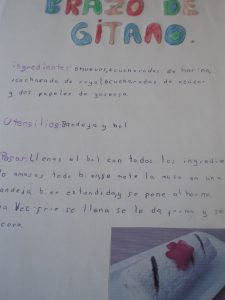 BRAZO DE
GITANO.
ingredientes: 8 huevos, 8 cucharadas de harina,
cucharada de royal, 8 cucharadas de azúcar
y dos papeles de gaseosa.
Utensilios: Bandeja y bol
Pasos: Llenas el bol con todos los ingredie
lo amasas todo bien, se mete la masa en una
andeja bien extendida y se pone al horno
se llena se le da forma y se
cora.